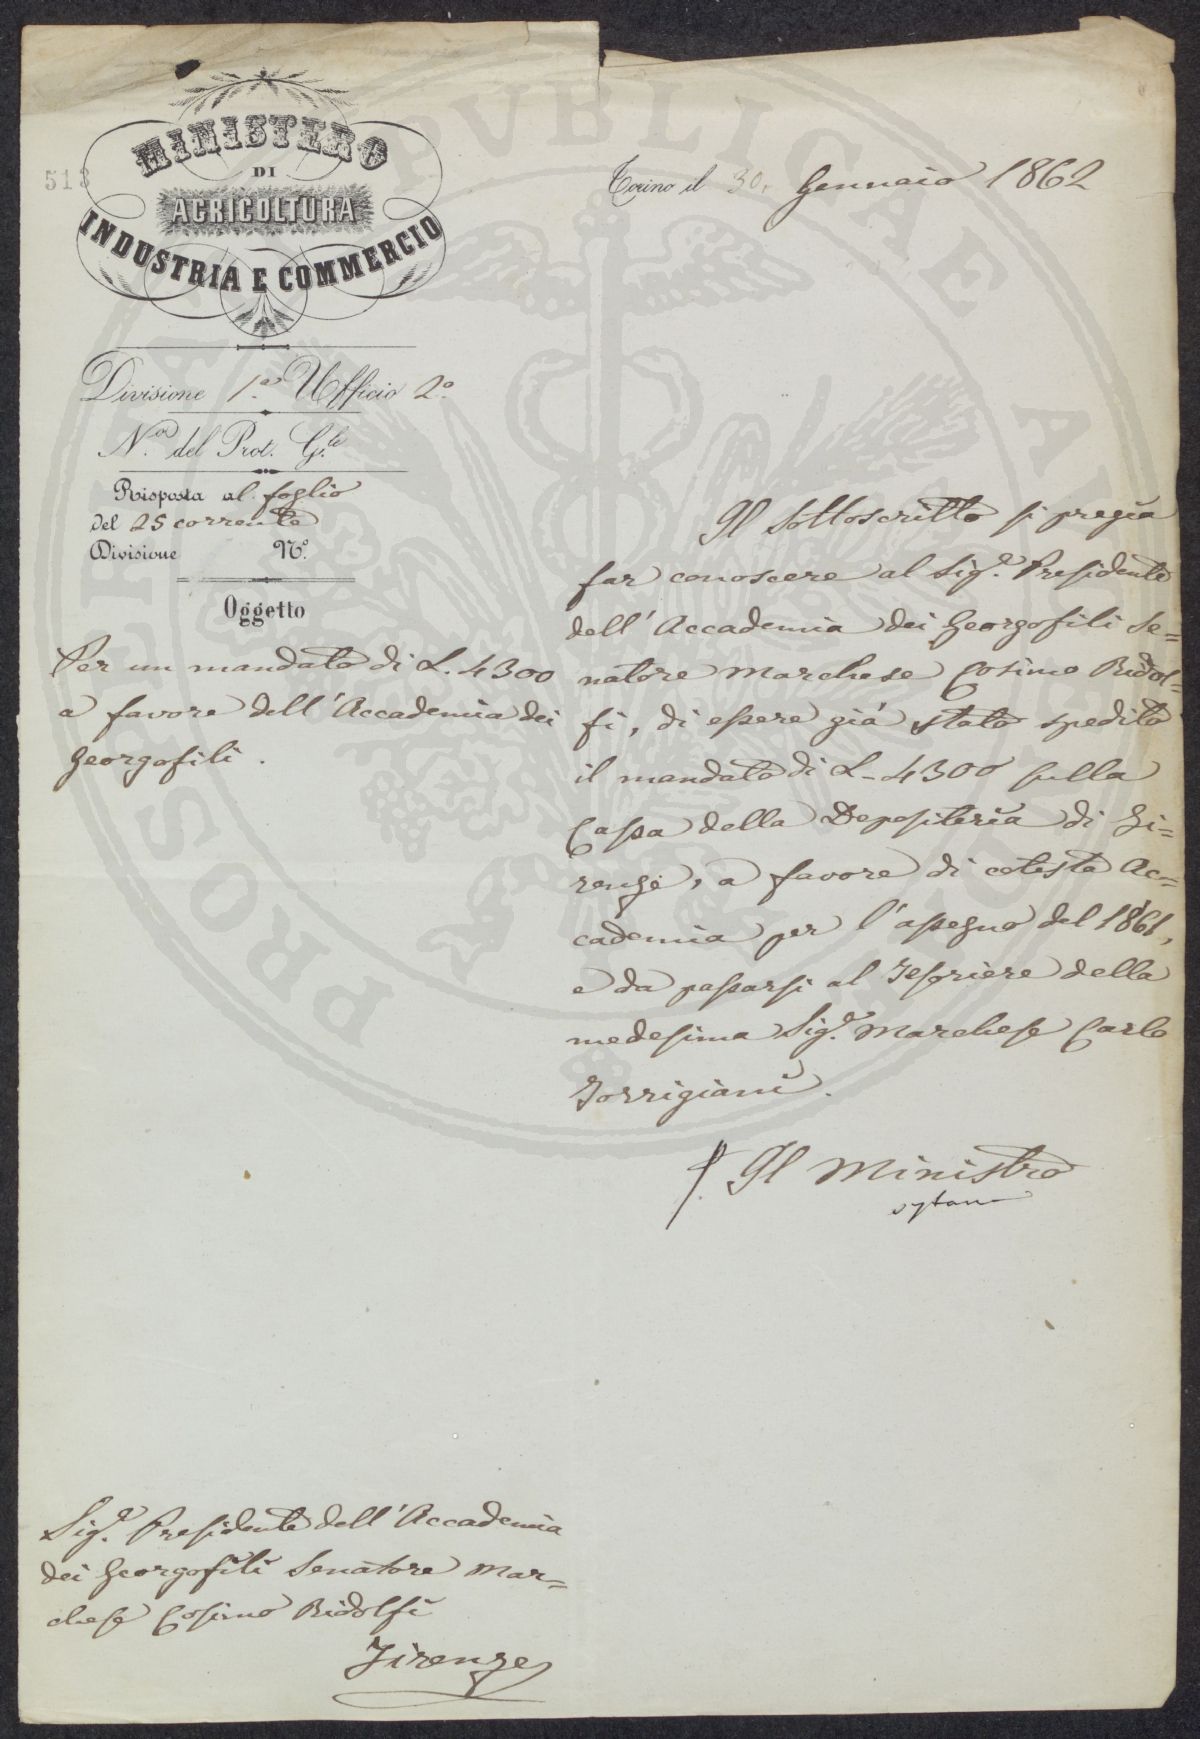 MINISTERO
DI
AGRICOLTURA
INDUSTRIA E COMMERCIO
513
Torino il 30. Gennaio 1862
Divisione 1.a Ufficio 2.o
N.o del Prot. G.le
Risposta al foglio
del 25 corrente
Divisione N.o
Oggetto
Per un mandato di L. 4300
a favore dell'Accademia dei
Georgofili.
Il Sottoscritto si pregia
far conoscere al Sig.e Presidente
dell'Accademia dei Georgofili Se=
natore Marchese Cosimo Ridol=
fi, di essere già stato spedito
il mandato di L. 4300 sulla
Cassa della Depositeria di Fi=
renze, a favore di cotesta Ac=
cademia per l'assegno del 1861,
e da passarsi al Tesoriere della
medesima Sig.e Marchese Carlo
Torrigiani.
p. Il Ministro
Sig.e Presidente dell'Accademia
dei Georgofili Senatore Mar=
chese Cosimo Ridolfi
Firenze
PROSPERITATI PUBLICAE AUGENDAE